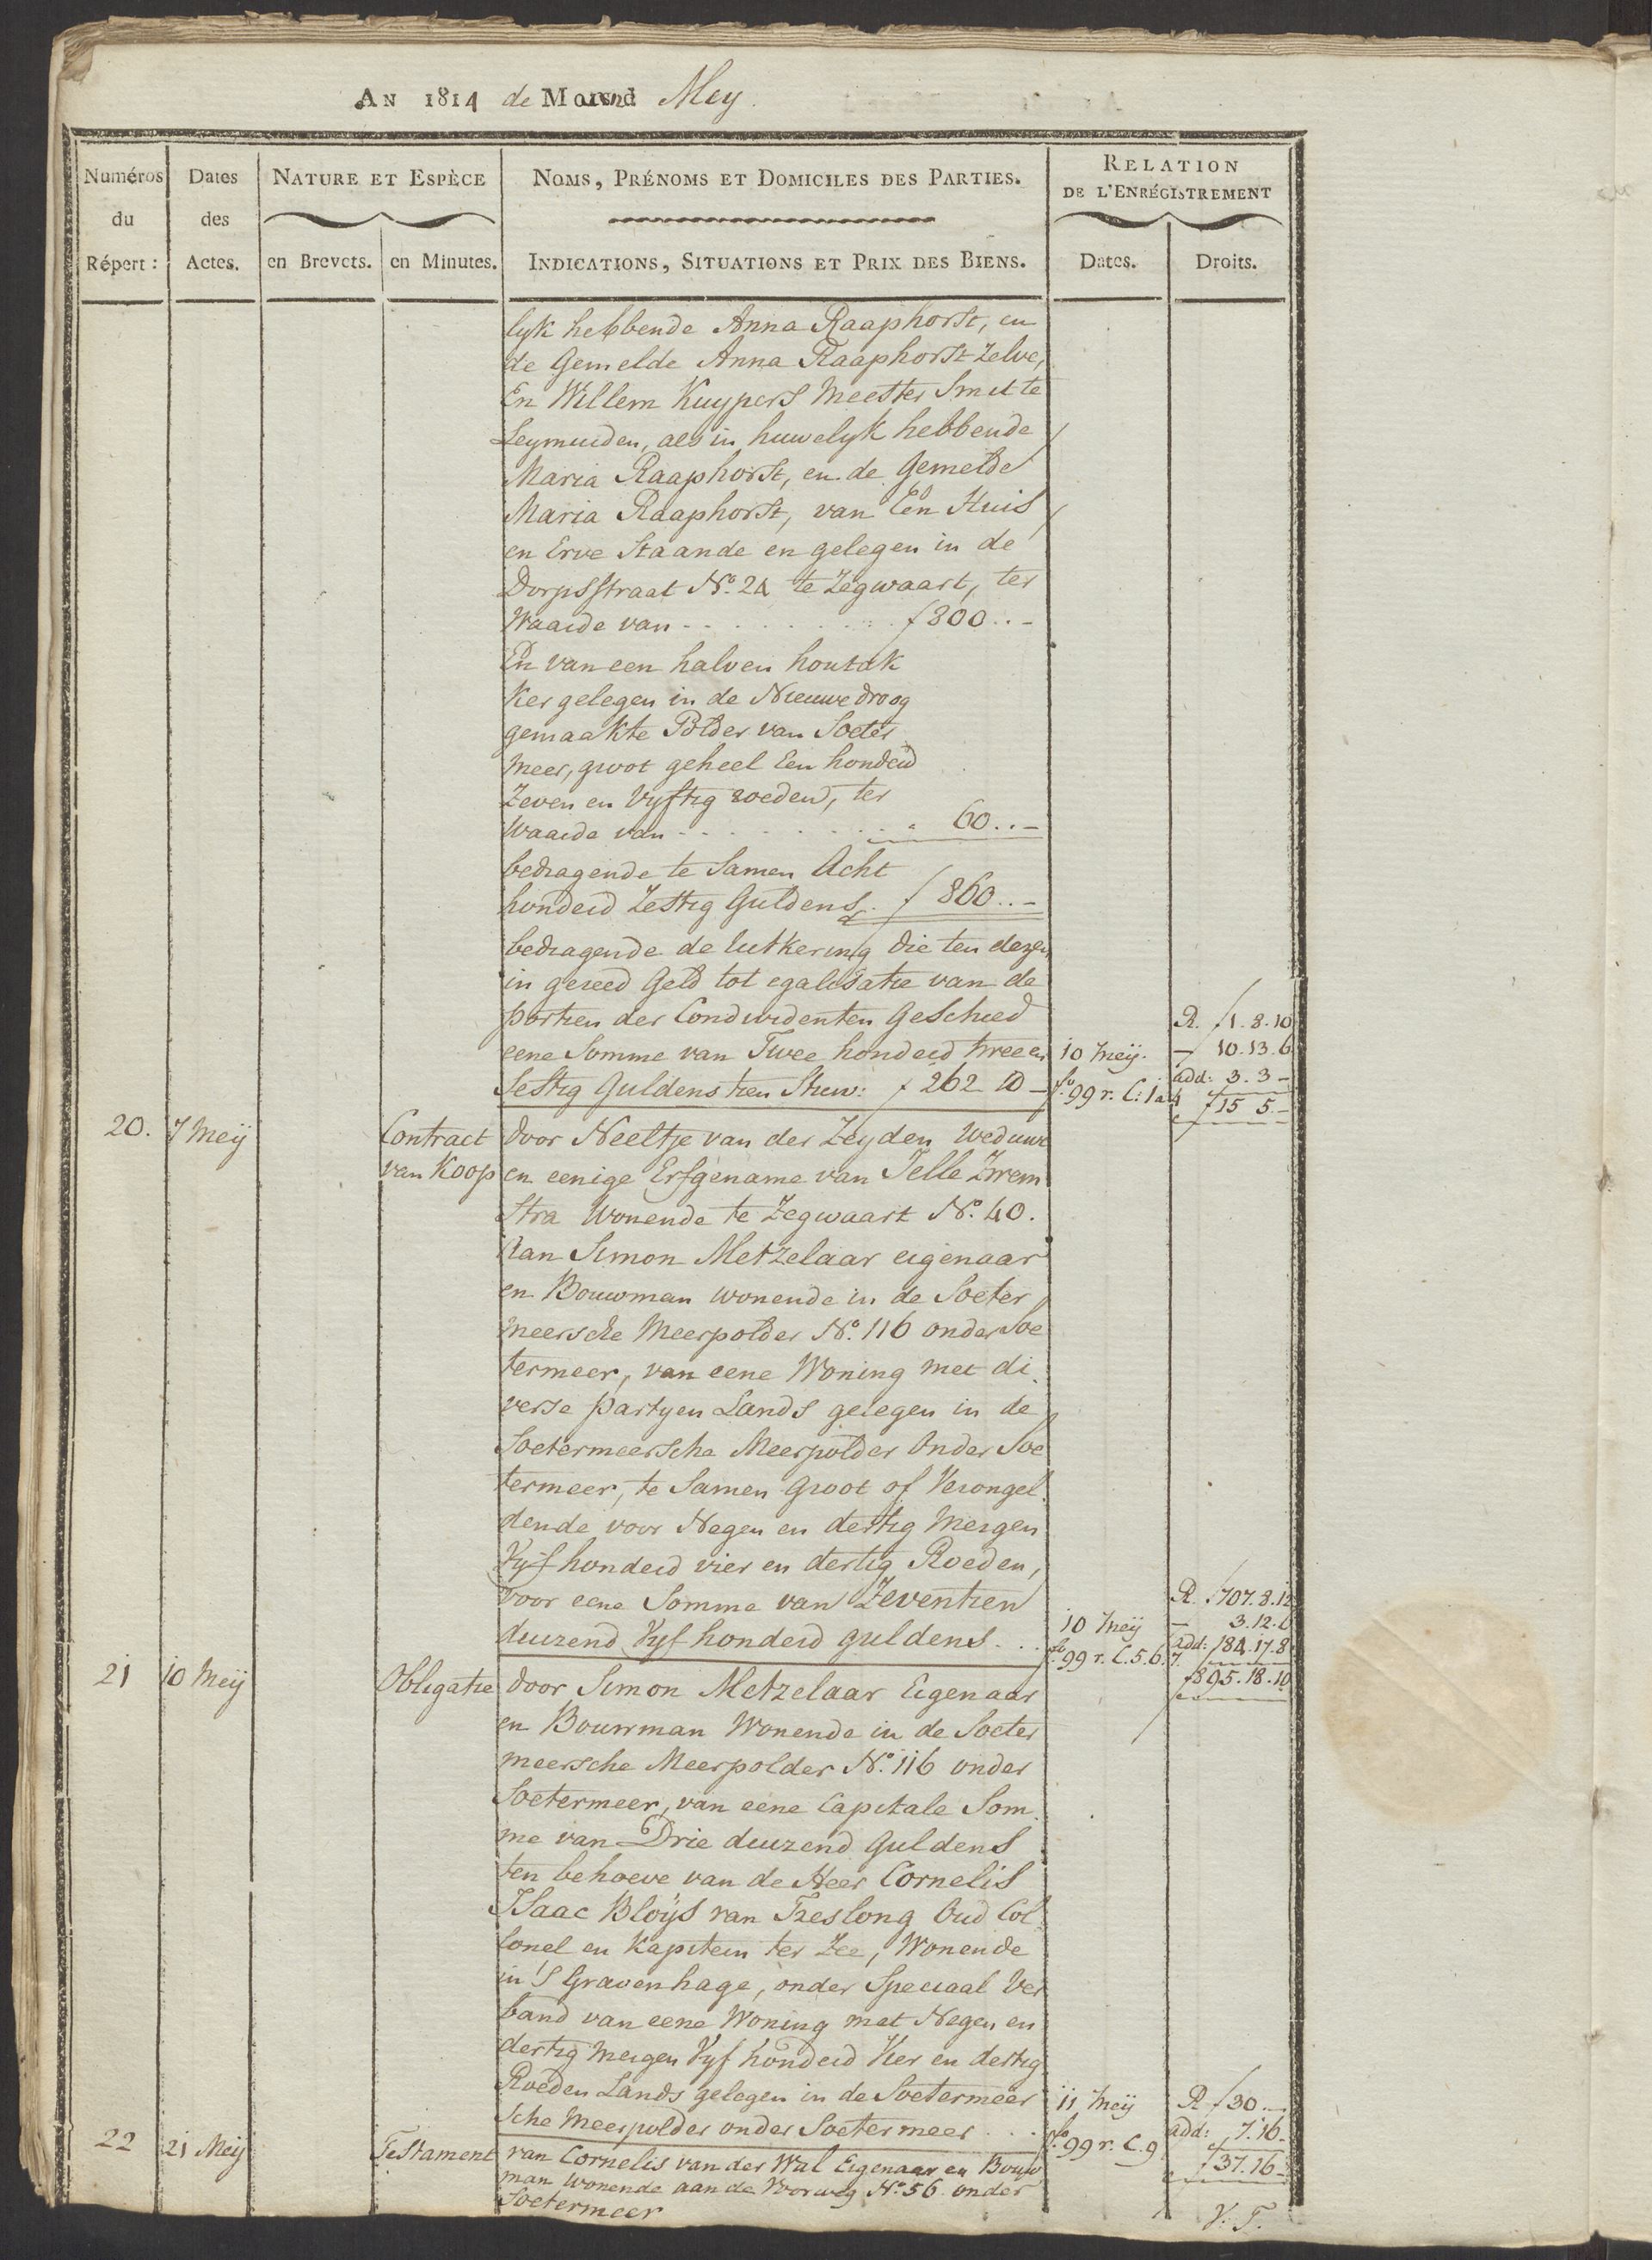 AN 1814 de Maand Mey.
Numéros du Répert:
Dates des Actes.
NATURE ET ESPÈCE
en Brevets.
en Minutes.
NOMS, PRÉNOMS ET DOMICILES DES PARTIES.
INDICATIONS, SITUATIONS ET PRIX DES BIENS.
RELATION
DE L'ENRÉGISTREMENT
Dates.
Droits.
lyk hebbende Anna Raaphorst, en
de Gemelde Anna Raaphorst Zelve,
En Willem Kuypers Meester Smit te
Leymuiden, als in huwelyk hebbende
Maria Raaphorst, en de Gemelde
Maria Raaphorst, van Een Huis
en Erve Staande en gelegen in de
Dorpsstraat No. 24 te Zegwaart, ter
Waarde van - - - - ƒ 800..-
En van een halven houtak
ker gelegen in de Nieuwe droog
gemaakte Polder van Soeter
meer, groot geheel Een honderd
Zeven en Vyftig roeden, ter
waarde van - - - - 60..-
bedragende te Samen Acht
honderd Zestig Guldens. ƒ 860..-
bedragende de uitkering die ten dezen
in gereed Geld tot egalisatie van de
portien der Condividenten Geschied
R. ƒ1.8.10
eene Somme van Twee honderd twee en
10 Meij.
- 10.13.6
Sestig Guldens tien Stuiv: ƒ 262 10 -
fo 99 r. C: 1 a 4
add: 3.3-
ƒ15 5.-
20. 7 Meij Contract door Neeltje van der Zeyden Weduwe
van Koop en eenige Erfgename van Jelle Zwem
stra Wonende te Zegwaart No. 40.
Aan Simon Metzelaar eigenaar
en Bouwman wonende in de Soeter
meersche Meerpolder No. 116 onder Soe
termeer, van eene Woning met di
verse partyen Lands gelegen in de
Soetermeersche Meerpolder Onder Soe
termeer, te Samen Groot of Verongel
dende voor Negen en dertig Mergen
Vyf honderd vier en dertig Roeden,
voor eene Somme van Zeventien
R. ƒ707.8.12
duizend Vyf honderd guldens. . .
10 Meij
- 3.12.6
fo 99 r. C.5.6.7.
add: 184.17.8
ƒ895.18.10
21 10 Meij Obligatie door Simon Metzelaar Eigenaar
en Bouwman Wonende in de Soeter
meersche Meerpolder No. 116 onder
Soetermeer, van eene Capitale Som
me van Drie duizend Guldens
ten behoeve van de Heer Cornelis
Isaac Bloys van Treslong Oud Col
lonel en Kapitein ter Zee, Wonende
in 's Gravenhage, onder Speciaal Ver
band van eene Woning met Negen en
dertig Mergen Vyf honderd Vier en dertig
Roeden Lands gelegen in de Soetermeer
11 Meij
R ƒ30.-
sche Meerpolder onder Soetermeer . . .
fo 99 r. C.9
add: 7.16-
ƒ37.16-
22 21 Meij Testament van Cornelis van der Wal Eigenaar en Bouw
man wonende aan de Voorweg No. 56 onder
Soetermeer
V. T.